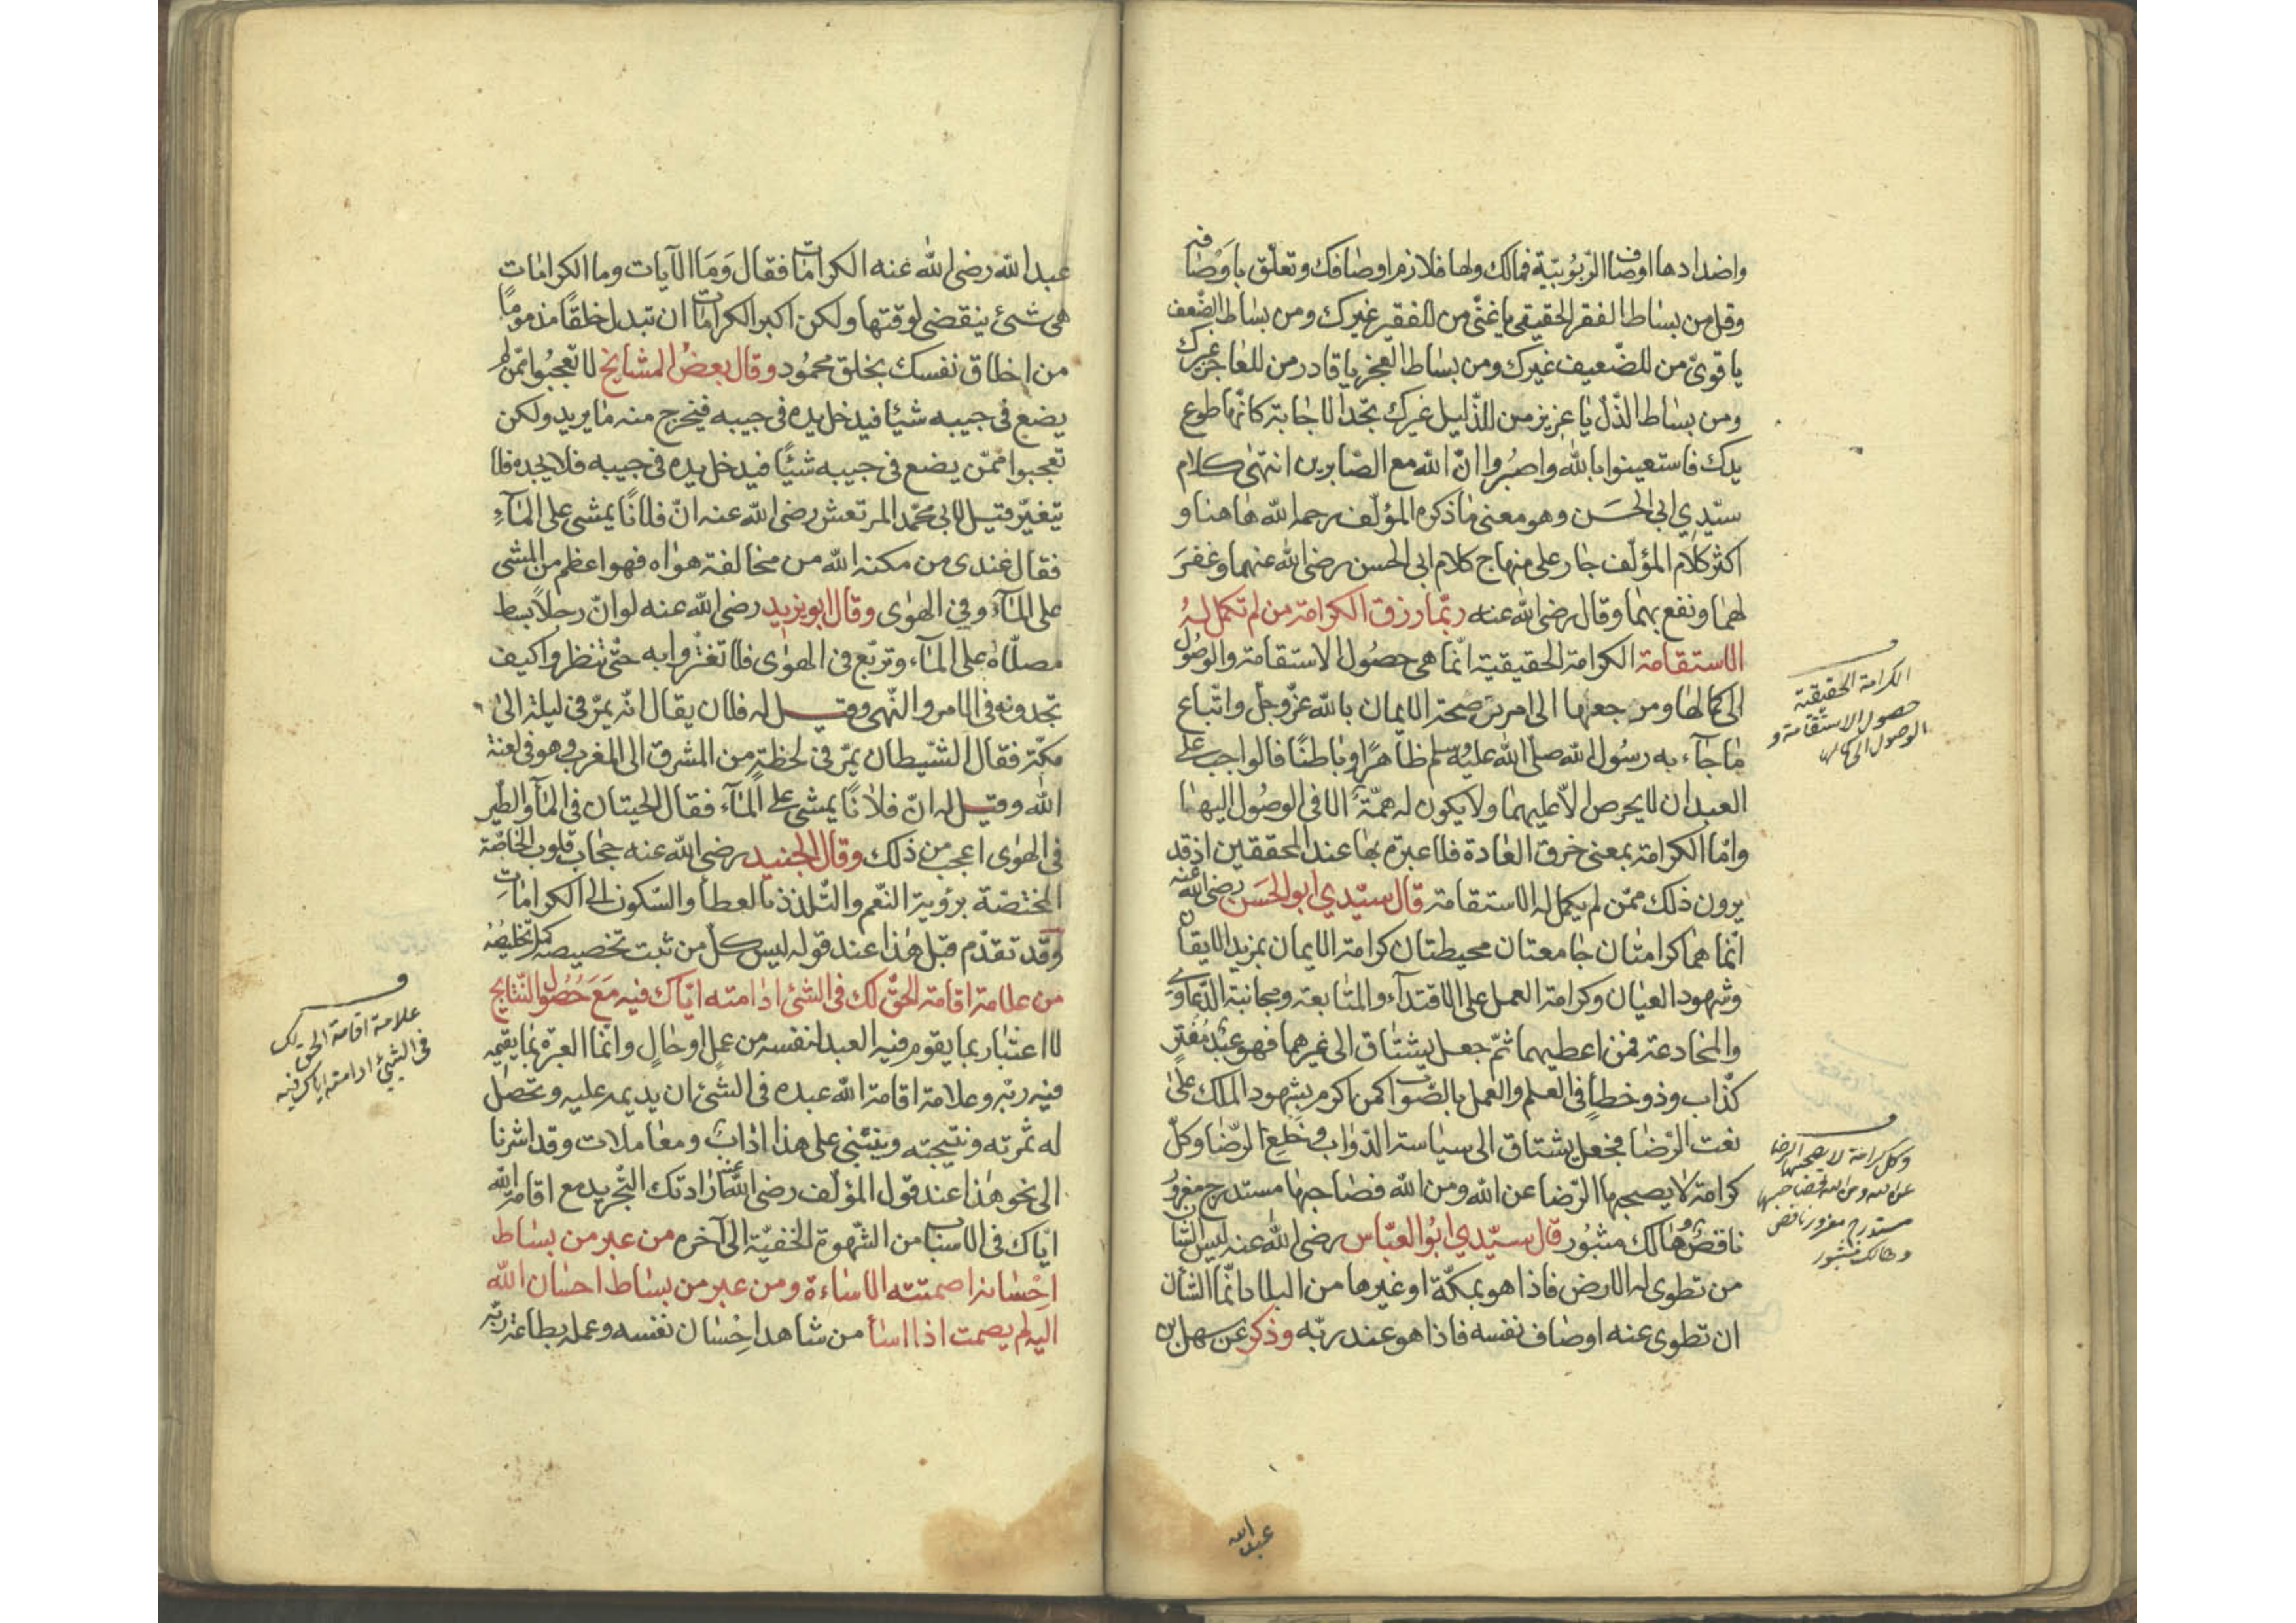 واضدادها اوصاف الرّبوبيّة فمالك ولها فلازم اوصافك وتعلّق باوصافه
وقل من بساط الفقر الحقيقى يا غنىّ من للفقير غيرك ومن بساط الضّعف
يا قوىّ من للضّعيف غيرك ومن بساط العجز يا قادر من للعاجز غيرك
ومن بساط الذّل يا عزيز من للذّليل غيرك تجد الاجابة كانّها طوع
يدك فاستعينوا بالله واصبروا انّ الله مع الصّابرين انتهى كلام
سيّدي ابى الحسَن وهو معنى ما ذكره المؤلّف رحمه الله هاهنا و
اكثر كلام المؤلّف جار على منهاج كلام ابى الحسن رضى الله عنهما وغفرَ
لهما ونفع بهما وقال رضى الله عنه ربّما رزق الكرامة من لم تكمل لهُ
الاستقامة الكرامة الحقيقية انّما هى حصُول الاستقامة والوصُول
الى كمالها ومرجعها الى امرين صحة الايمان بالله عزّ وجلّ واتّباع
ما جآء به رسُول الله صلّى الله عليه وسلم ظاهرًا وباطنًا فالواجب على
العبد ان لا يحرص الاّ عليهما ولا يكون له همّة الا فى الوصُول اليهما
وامّا الكرامة بمعنى خرق العادة فلا عبرة بها عند المحققين اذ قد
يرون ذلك ممّن لم يكمل له الاستقامة قال سيّدي ابو الحَسَن رضى الله عنه
انّما هما كرامتان جامعتان محيطتان كرامة الايمان بمزيد الايقان
وشهود العيان وكرامة العمل على الاقتدآء والمتابعة ومجانبة الدّعاوي
والمخادعة فمن اعطيهما ثمّ جعل يشتاق الى غيرهما فهو عبْد مُفترٍ
كذّاب وذو خطأٍ فى العلم والعمل بالصّواب كمن اكرم بشهود الملك على
نعت الرّضا فجعل يشتاق الى سياسة الدّوابّ وخلع الرّضا وكلّ
كرامة لا يصحبها الرّضا عن الله ومن الله فصاحبها مستدرج مغرورٌ
ناقصٌ وهالك مثبُور قال سيّدي ابُو العبّاس رضى الله عنه ليس الشّان
من تطوى له الارض فاذا هو بمكّة او غيرها من البلاد انّما الشّان
ان تطوى عنه اوصاف نفسه فاذا هو عند ربّه وذكر عن سهل بن
الكرامة الحقيقية
حصول الاستقامة و
الوصول الى كمالها
وكل كرامة لا يصحبها الرضا
عن الله ومن الله فصاحبها
مستدرج مغرور ناقص
وهالك مثبور
عبد الله
عبد الله رضى الله عنه الكرامات فقال وَمَا الآيات وما الكرامات
هى شىئ ينقضى لوقتها ولكن اكبر الكرامات ان تبدل خلقًا مذمومًا
من اخلاق نفسك بخلق محمُود وقال بعضُ المشايخ لا تعجبُوا ممّن لم
يضع فى جيبه شيئا فيدخل يده فى جيبه فيخرج منه ما يريد ولكن
تعجبوا ممّن يضع فى جيبه شيئًا فيدخل يده فى جيبه فلا يجده فلا
يتغيّر قيل لابى محمّد المرتعش رضى الله عنه انّ فلانًا يمشى على المآءِ
فقال عندى من مكنه الله من مخالفة هواه فهو اعظم من المشى
على المآء وفى الهوٰى وقال ابو يزيد رضى الله عنه لو انّ رجلاً بسط
مصلّاه على المآء وتربّع فى الهوٰى فلا تغترّوا به حتّى تنظروا كيف
تجدونه فى الامر والنّهى وقيل له فلان يقال انّه يمرّ فى ليلة الى
مكّة فقال الشّيطان يمرّ فى لحظةٍ من المشرق الى المغرب وهو فى لعنة
الله وقيل له انّ فلانًا يمشى على المآء فقال الحيتان فى المآء والطّير
فى الهوٰى اعجب من ذلك وقال الجنيد رضى الله عنه حجاب قلوب الخاصّة
المختصّة برؤية النّعم والتّلذذ بالعطا والسّكون الى الكرامات
وقد تقدّم قبل هذا عند قوله ليس كلّ من ثبت تخصيصه كمل تخليصُه
من علامة اقامة الحقّ لك فى الشئ ادامته ايّاك فيه مَعَ حُصُول النّتايج
لا اعتبار بما يقوم فيه العبد نفسه من عملٍ او حالٍ وانّما العبرة بما يقيمه
فيه ربّه وعلامة اقامة الله عبده فى الشئ ان يديمه عليه وتحصل
له ثمرته ونتيجته وينبنى على هذا ادابٌ ومعاملات وقد اشرنا
الى نحو هذا عند قول المؤلّف رضى الله عنه ارادتك التّجريد مع اقامة الله
ايّاك فى الاسباب من الشّهوة الخفيّة الى آخره من عبر من بساط
احْسانه اصمتته الاساءة ومن عبر من بساط احسان الله
اليه لم يصمت اذا اسآ من شاهد احْسان نفسه وعمله بطاعة ربّه
علامة اقامة الحق لك
فى الشيئ ادامته اياك فيه